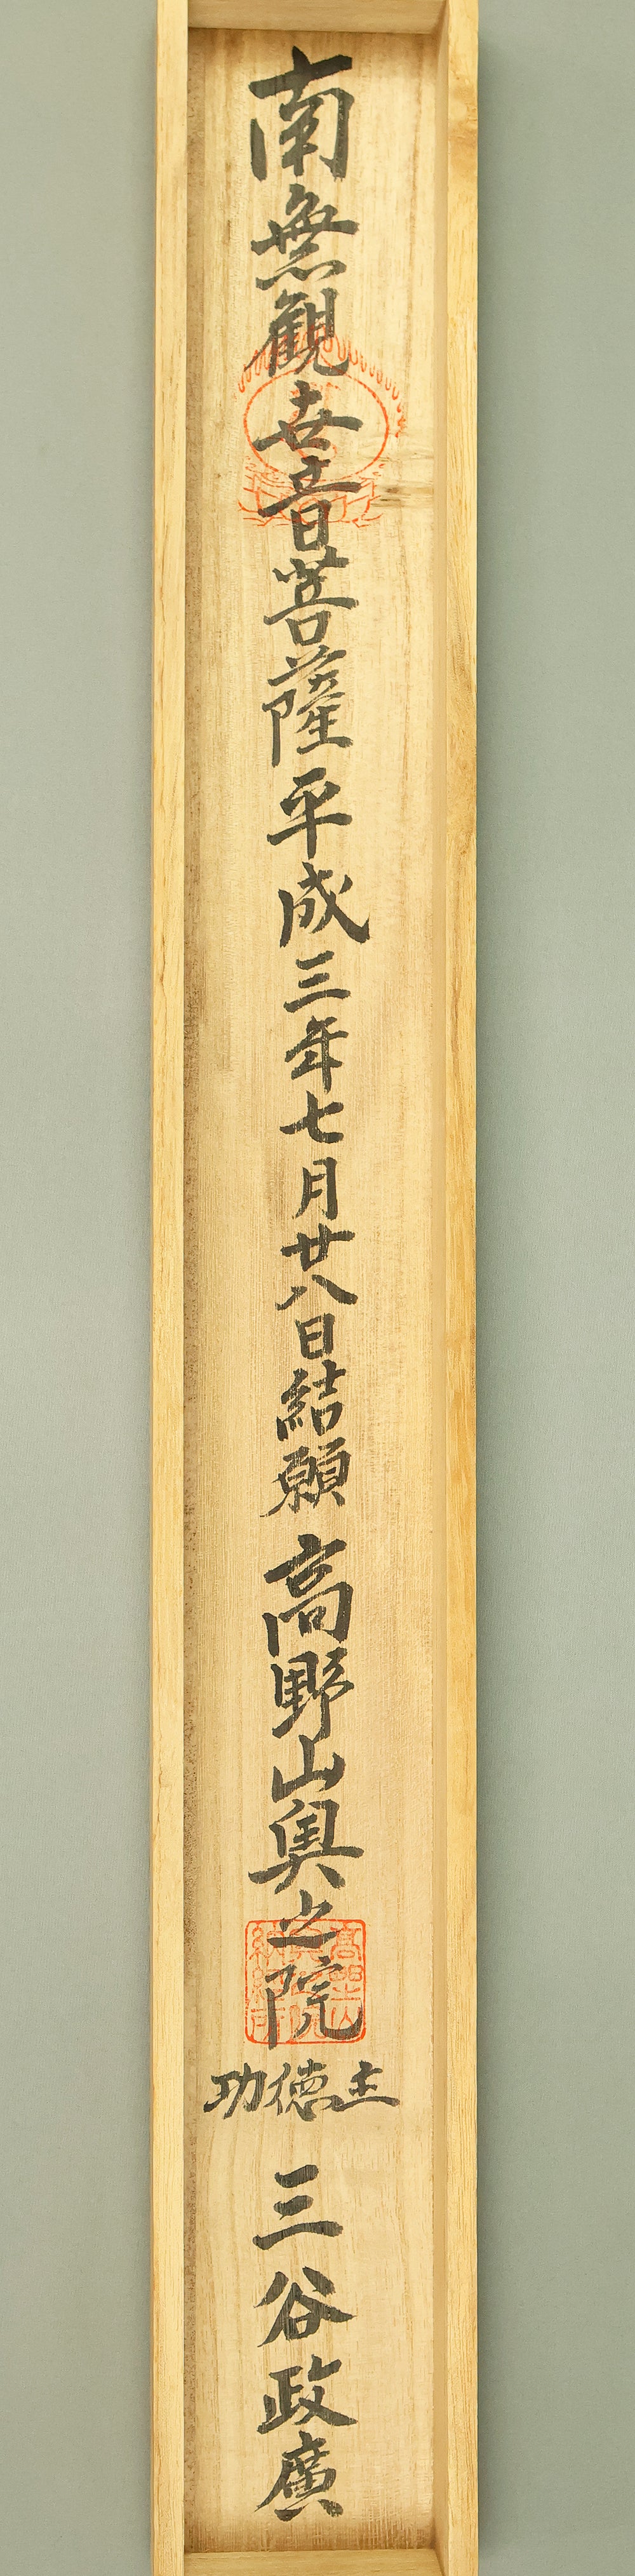 南無観世音菩薩平成三年七月廿八日結願
高野山奥之院
功徳主
三谷政廣